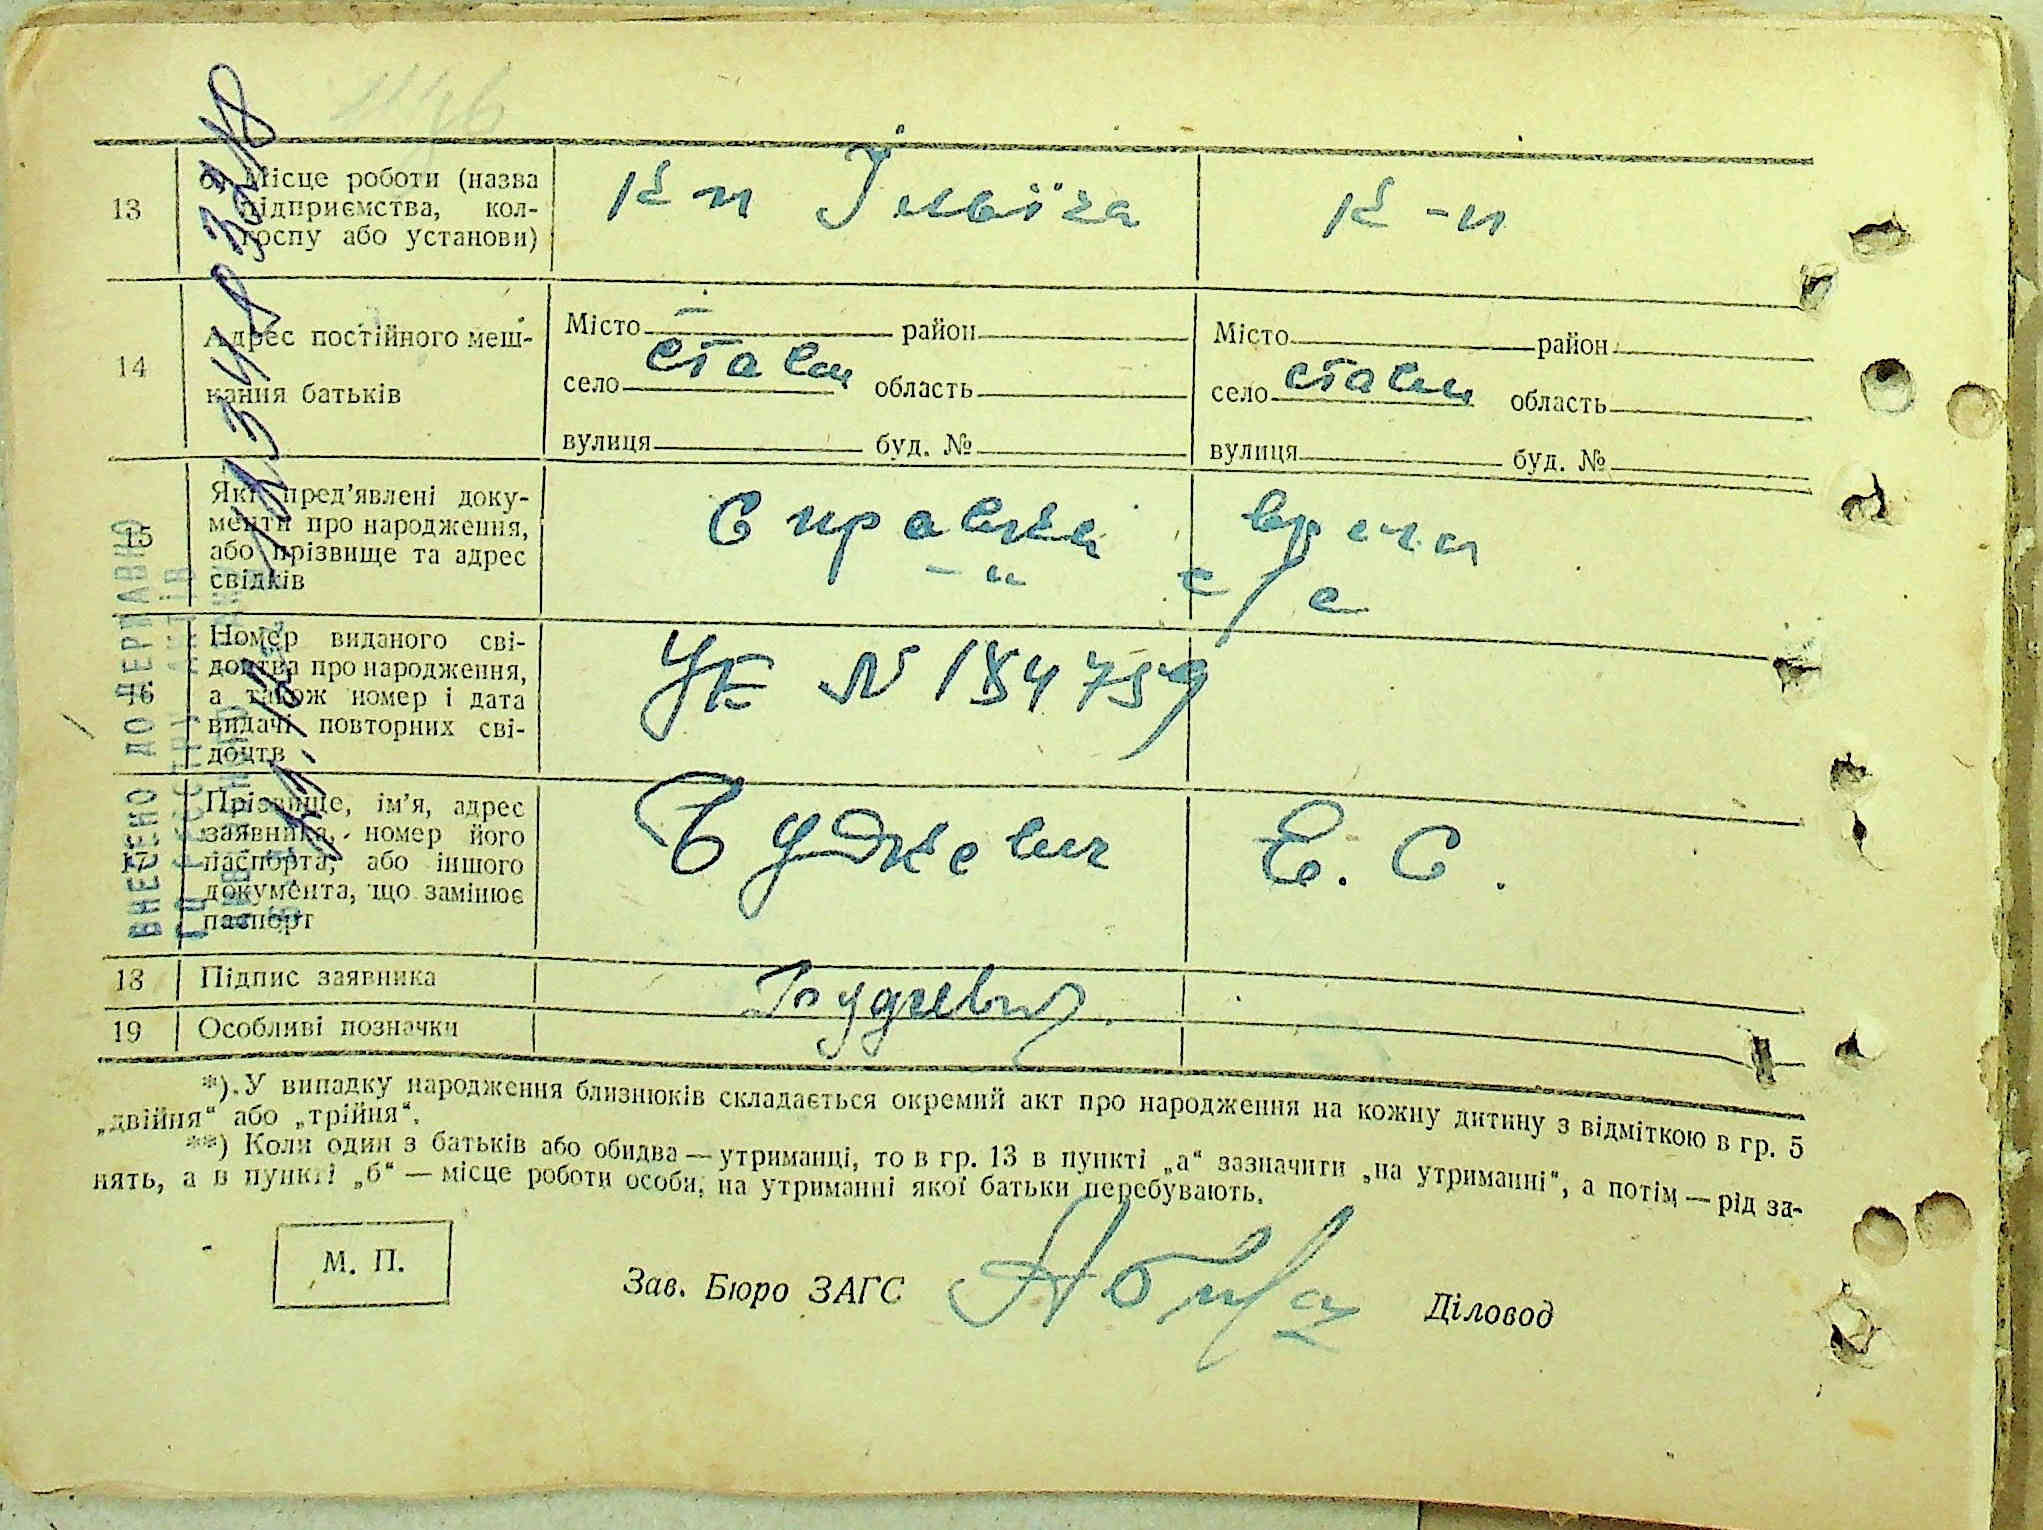 13
б) Місце роботи (назва
підприємства, кол-
госпу або установи)
К-п Ілліча
К-п
14
Адрес постійного меш-
кання батьків
Місто район
село Стави область
вулиця буд. №
Місто район
село Стави область
вулиця буд. №
15
Які пред’явлені доку-
менти про народження,
або прізвище та адрес
свідків
Справка врача
– „ с/с
16
Номер виданого сві-
доцтва про народження,
а також номер і дата
видачі повторних сві-
доцтв
УЕ № 184759
17
Прізвище, ім’я, адрес
заявника, номер його
паспорта, або іншого
документа, що замінює
паспорт
Будкевич Е. С.
18 Підпис заявника
Будкевич
19 Особливі позначки
*) У випадку народження близнюків складається окремий акт про народження на кожну дитину з відміткою в гр. 5
„двійня“ або „трійня“.
**) Коли один з батьків або обидва — утриманці, то в гр. 13 в пункті „а“ зазначити „на утриманні“, а потім — рід за-
нять, а в пункті „б“ — місце роботи особи, на утриманні якої батьки перебувають.
М. П.
Зав. Бюро ЗАГС
Діловод
ВНЕСЕНО ДО ДЕРЖАВНО